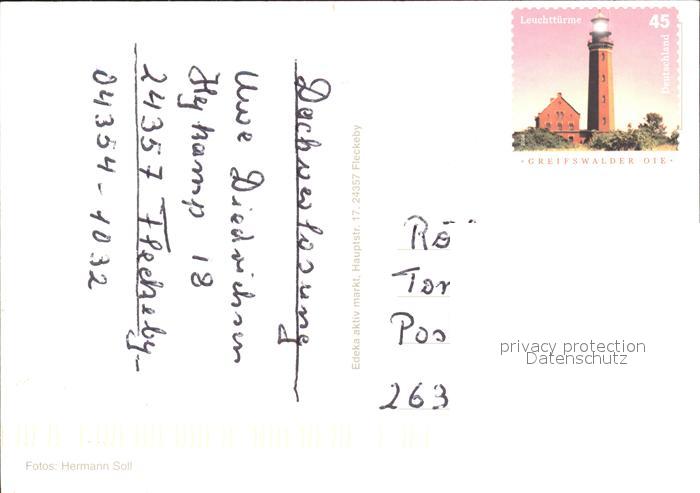 Leuchttürme
45
Deutschland
· GREIFSWALDER OIE ·
Uwe Diedrichsen
Hykamp 18
24357 Fleckeby
04354-1032
Edeka aktiv markt, Hauptstr. 17, 24357 Fleckeby
Rö
Tor
Pos
263
privacy protection
Datenschutz
Fotos: Hermann Soll